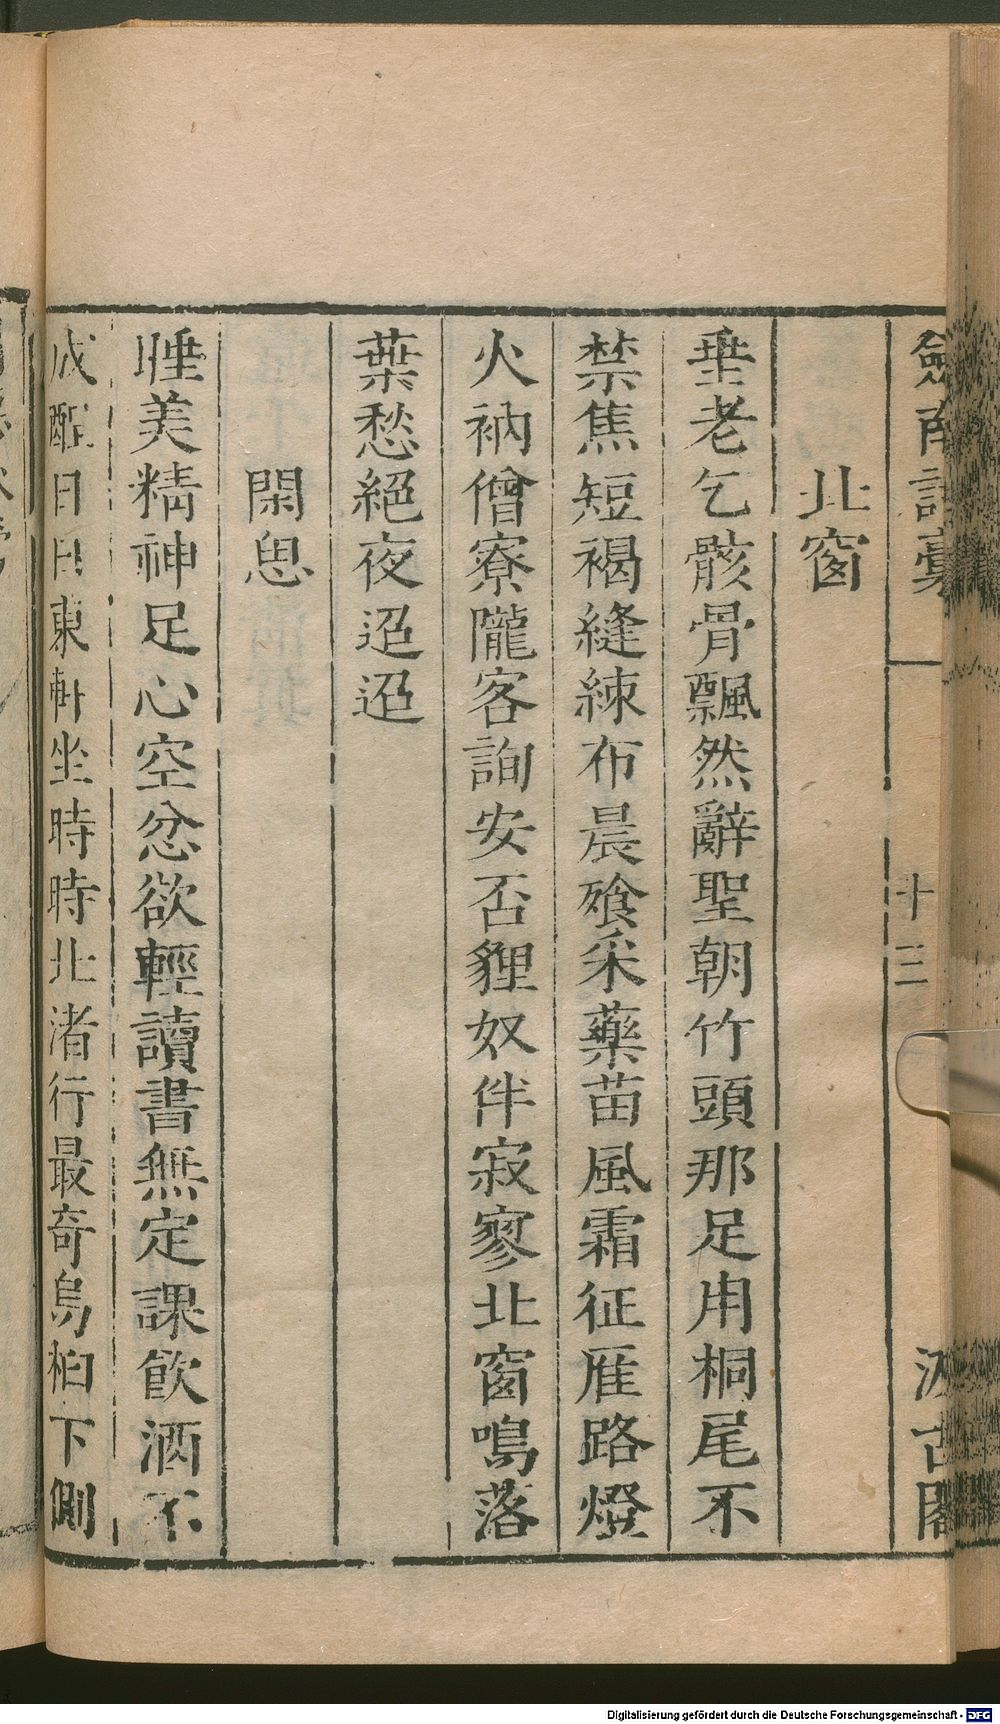 劒南詩稾
十三
汲古閣
北窗
垂老乞骸骨飄然辭聖朝竹頭那足用桐尾不
禁焦短褐縫練布晨飱采藥苗風霜征雁路燈
火衲僧寮隴客詢安否貍奴伴寂寥北窗鳴落
葉愁絕夜迢迢
閑思
睡美精神足心空忿欲輕讀書無定課飲酒不
成酲日日東軒坐時時北渚行最奇烏桕下側
Digitalisierung gefördert durch die Deutsche Forschungsgemeinschaft - DFG